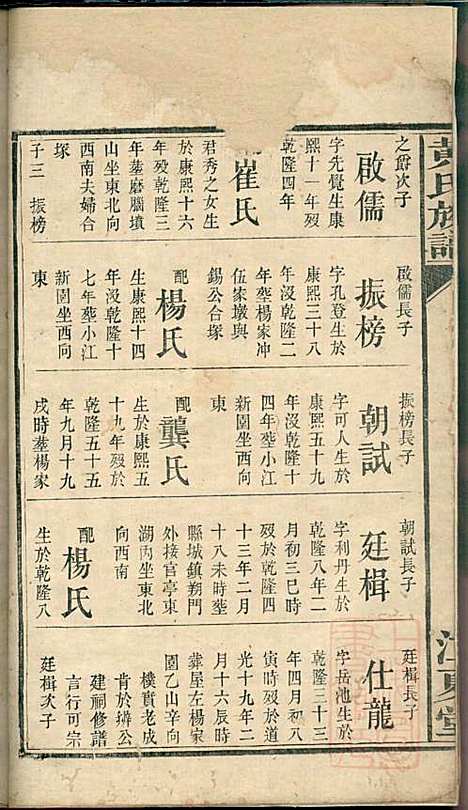 黃氏族譜
江夏堂
之爵次子
啟儒
字先覺生康
熙十一年歿
乾隆四年
崔氏
君秀之女生
於康熙十六
年歿乾隆三
年塟麻腦墳
山坐東北向
西南夫婦合
塚
子三 振榜
啟儒長子
振榜
字孔登生於
康熙三十八
年没乾隆二
年塟楊家冲
伍家墩與
錫公合塚
配 楊氏
生康熙十四
年没乾隆十
七年塟小江
新園坐西向
東
振榜長子
朝試
字可人生於
康熙五十九
年没乾隆十
四年塟小江
新園坐西向
東
配 龔氏
生於康熙五
十九年歿於
乾隆五十五
年九月十九
戌時塟楊家
朝試長子
廷楫
字利丹生於
乾隆八年二
月初三巳時
歿於乾隆四
十三年二月
十八未時塟
縣城鎮朔門
外接官亭東
湖內坐東北
向西南
配 楊氏
生於乾隆八
廷楫長子
仕龍
字岳池生於
乾隆三十三
年四月初八
寅時歿於道
光十九年二
月十六辰時
葬屋左楊家
園乙山辛向
樸實老成
肯於辦公
建祠修譜
言行可宗
廷楫次子